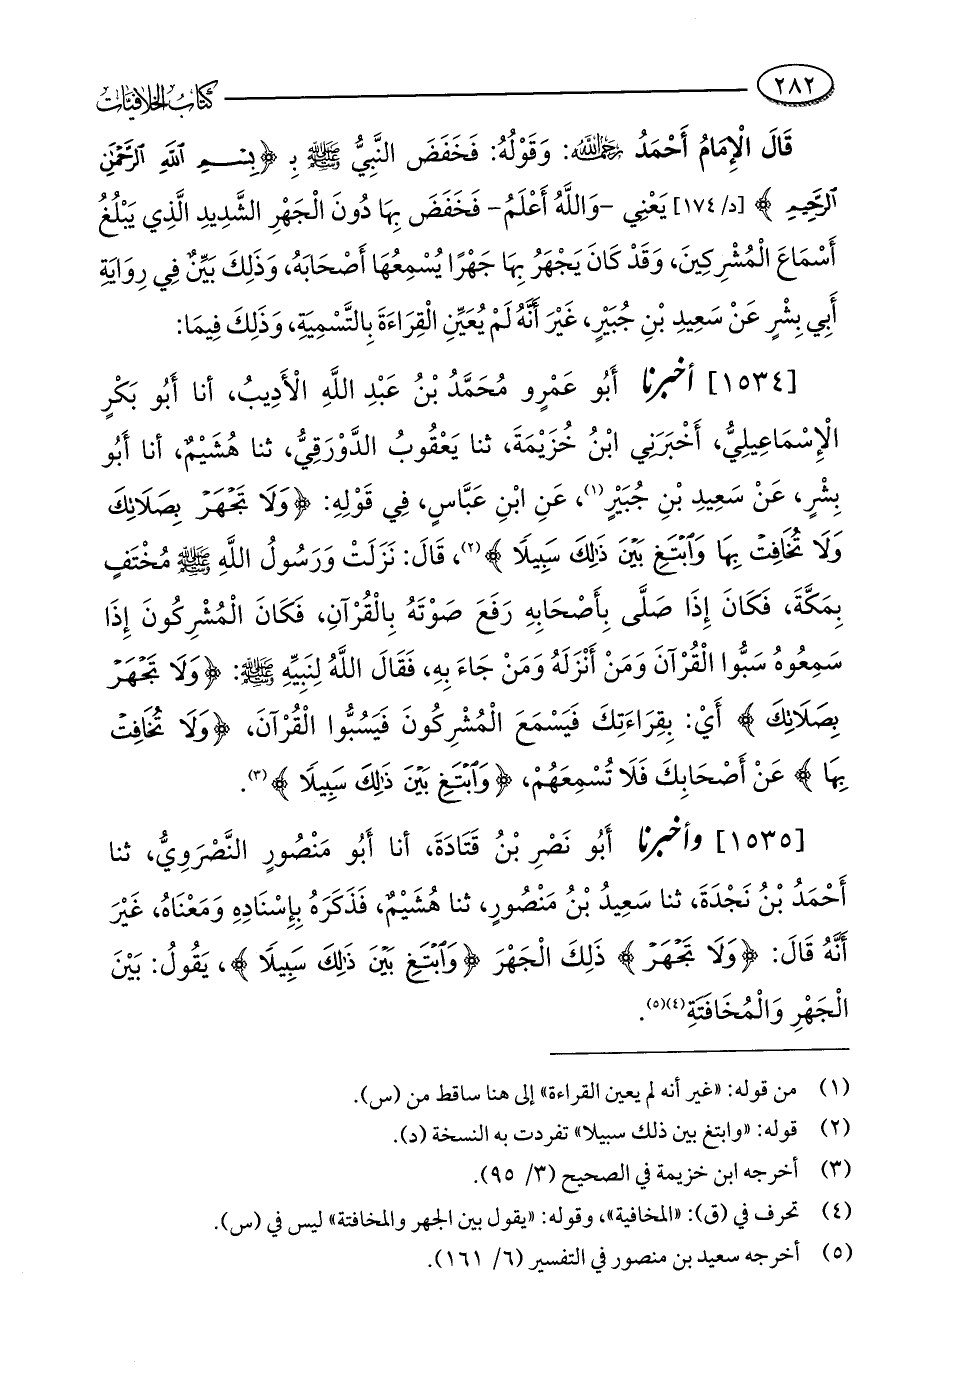 ٢٨٢ كتاب الخلافيات
قَالَ الْإِمَامُ أَحْمَدُ رَحِمَهُ اللَّهُ: وَقَوْلُهُ: فَخَفَضَ النَّبِيُّ ﷺ بِـ ﴿بِسْمِ ٱللَّهِ ٱلرَّحْمَٰنِ
ٱلرَّحِيمِ﴾ [د/ ١٧٤] يَعْنِي -وَاللَّهُ أَعْلَمُ- فَخَفَضَ بِهَا دُونَ الْجَهْرِ الشَّدِيدِ الَّذِي يَبْلُغُ
أَسْمَاعَ الْمُشْرِكِينَ، وَقَدْ كَانَ يَجْهَرُ بِهَا جَهْرًا يُسْمِعُهَا أَصْحَابَهُ، وَذَلِكَ بَيِّنٌ فِي رِوَايَةِ
أَبِي بِشْرٍ عَنْ سَعِيدِ بْنِ جُبَيْرٍ، غَيْرَ أَنَّهُ لَمْ يُعَيِّنِ الْقِرَاءَةَ بِالتَّسْمِيَةِ، وَذَلِكَ فِيمَا:
[١٥٣٤] أخبرنا أَبُو عَمْرٍو مُحَمَّدُ بْنُ عَبْدِ اللَّهِ الْأَدِيبُ، أنا أَبُو بَكْرٍ
الْإِسْمَاعِيلِيُّ، أَخْبَرَنِي ابْنُ خُزَيْمَةَ، ثنا يَعْقُوبُ الدَّوْرَقِيُّ، ثنا هُشَيْمٌ، أنا أَبُو
بِشْرٍ، عَنْ سَعِيدِ بْنِ جُبَيْرٍ(١)، عَنِ ابْنِ عَبَّاسٍ، فِي قَوْلِهِ: ﴿وَلَا تَجْهَرْ بِصَلَاتِكَ
وَلَا تُخَافِتْ بِهَا وَٱبْتَغِ بَيْنَ ذَٰلِكَ سَبِيلًا﴾(٢)، قَالَ: نَزَلَتْ وَرَسُولُ اللَّهِ ﷺ مُخْتَفٍ
بِمَكَّةَ، فَكَانَ إِذَا صَلَّى بِأَصْحَابِهِ رَفَعَ صَوْتَهُ بِالْقُرْآنِ، فَكَانَ الْمُشْرِكُونَ إِذَا
سَمِعُوهُ سَبُّوا الْقُرْآنَ وَمَنْ أَنْزَلَهُ وَمَنْ جَاءَ بِهِ، فَقَالَ اللَّهُ لِنَبِيِّهِ ﷺ: ﴿وَلَا تَجْهَرْ
بِصَلَاتِكَ﴾ أَيْ: بِقِرَاءَتِكَ فَيَسْمَعَ الْمُشْرِكُونَ فَيَسُبُّوا الْقُرْآنَ، ﴿وَلَا تُخَافِتْ
بِهَا﴾ عَنْ أَصْحَابِكَ فَلَا تُسْمِعَهُمْ، ﴿وَٱبْتَغِ بَيْنَ ذَٰلِكَ سَبِيلًا﴾(٣).
[١٥٣٥] وأخبرنا أَبُو نَصْرِ بْنُ قَتَادَةَ، أنا أَبُو مَنْصُورٍ النَّضْرَوِيُّ، ثنا
أَحْمَدُ بْنُ نَجْدَةَ، ثنا سَعِيدُ بْنُ مَنْصُورٍ، ثنا هُشَيْمٌ، فَذَكَرَهُ بِإِسْنَادِهِ وَمَعْنَاهُ، غَيْرَ
أَنَّهُ قَالَ: ﴿وَلَا تَجْهَرْ﴾ ذَلِكَ الْجَهْرَ ﴿وَٱبْتَغِ بَيْنَ ذَٰلِكَ سَبِيلًا﴾، يَقُولُ: بَيْنَ
الْجَهْرِ وَالْمُخَافَتَةِ(٤)(٥).
(١) من قوله: «غير أنه لم يعين القراءة» إلى هنا ساقط من (س).
(٢) قوله: «وابتغ بين ذلك سبيلا» تفردت به النسخة (د).
(٣) أخرجه ابن خزيمة في الصحيح (٣/ ٩٥).
(٤) تحرف في (ق): «المخافية»، وقوله: «يقول بين الجهر والمخافتة» ليس في (س).
(٥) أخرجه سعيد بن منصور في التفسير (٦/ ١٦١).